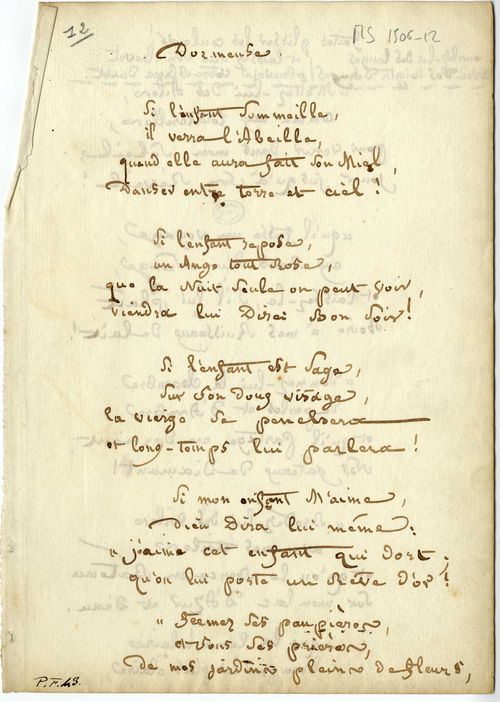 12
MS 1506-12
Dormeuse.
Si l'enfant Sommeille,
il verra l'Abeille,
quand elle aura fait Son Miel,
Danser entre terre et ciel !
Si l'enfant repose,
un Ange tout Rose,
que la Nuit Seule on peut Voir,
viendra lui Dire: Bon Soir !
Si l'enfant est Sage,
Sur Son Doux visage,
la vierge Se penchera
et long-temps lui parlera !
Si mon enfant M'aime,
Dieu Dira lui même:
" j'aime cet enfant qui Dort ;
qu'on lui porte un Rêve D'or !
" Fermez Ses paupières,
et Sous Ses prières,
De mes jardins pleins De fleurs,
P.F. 43.